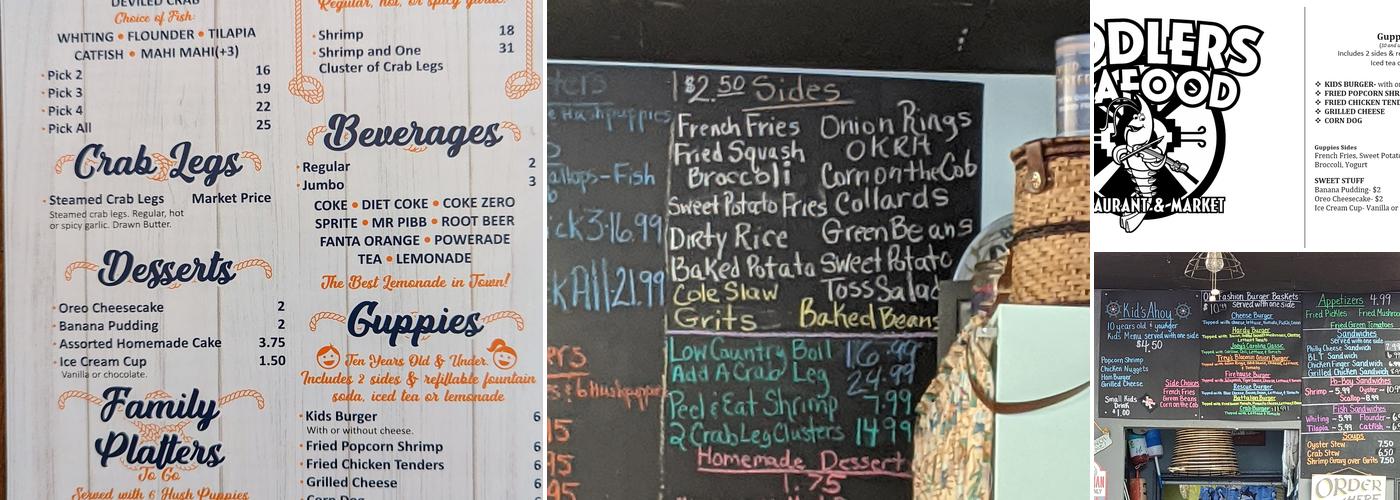 DEVILED CRAB
Choice of Fish:
WHITING • FLOUNDER • TILAPIA
CATFISH • MAHI MAHI(+3)
• Pick 2 16
• Pick 3 19
• Pick 4 22
• Pick All 25
Crab Legs
• Steamed Crab Legs Market Price
Steamed crab legs. Regular, hot
or spicy garlic. Drawn Butter.
Desserts
• Oreo Cheesecake 2
• Banana Pudding 2
• Assorted Homemade Cake 3.75
• Ice Cream Cup 1.50
Vanilla or chocolate.
Family
Platters
To Go
Served with 6 Hush Puppies
Regular, hot, or spicy garlic.
• Shrimp 18
• Shrimp and One 31
Cluster of Crab Legs
Beverages
• Regular 2
• Jumbo 3
COKE • DIET COKE • COKE ZERO
SPRITE • MR PIBB • ROOT BEER
FANTA ORANGE • POWERADE
TEA • LEMONADE
The Best Lemonade in Town!
Guppies
Ten Years Old & Under.
Includes 2 sides & refillable fountain
soda, iced tea or lemonade
• Kids Burger 6
With or without cheese.
• Fried Popcorn Shrimp 6
• Fried Chicken Tenders 6
• Grilled Cheese 6
Corn Dog
Hushpuppies
allops-Fish
ick 3-16.99
k All-21.99
& 6 Hushpuppies
$2.50 Sides
French Fries Onion Rings
Fried Squash OKRA
Broccoli Corn on the Cob
Sweet Potato Fries Collards
Dirty Rice Green Beans
Baked Potata Sweet Potato
Cole Slaw Toss Salad
Grits Baked Beans
Low Country Boil 16.99
Add A Crab Leg 24.99
Peel & Eat Shrimp 7.99
2 Crab Leg Clusters 14.99
Homemade Dessert
1.75
DDLERS
AFOOD
AURANT & MARKET
Includes 2 sides & re
Iced tea o
❖ KIDS BURGER- with or
❖ FRIED POPCORN SHR
❖ FRIED CHICKEN TEND
❖ GRILLED CHEESE
❖ CORN DOG
Guppies Sides
French Fries, Sweet Potato
Broccoli, Yogurt
SWEET STUFF
Banana Pudding- $2
Oreo Cheesecake- $2
Ice Cream Cup- Vanilla or
Kid's Ahoy
10 years old & younger
Kids Menu served with one side
$4.50
Popcorn Shrimp
Chicken Nuggets
Ham Burger
Grilled Cheese
Side Choices
French Fries
Green Beans
Corn on the Cob
Small Kids
Drink
$1.00
Old Fashion Burger Baskets
Served with one side
Cheese Burger
Hardy Burger
Firehouse Burger
Rescue Burger
Battalion Burger
Crab Burger
Appetizers 4.99
Fried Pickles Fried Mushroo
Fried Green Tomatoes
Sandwiches
Served with one side
Philly Cheese Sandwich
B.L.T Sandwich
Chicken Finger Sandwich
Grilled Chicken Sandwich
Po-Boy Sandwiches
Shrimp - 8.99 Oyster -
Scallop - 8.99
Fish Sandwiches
Whiting - 5.99 Flounder -
Tilapia - 5.99 Catfish -
Soups
Oyster Stew 7.50
Crab Stew 6.50
Shrimp Gravy over Grits 7.50
ORDER
HERE